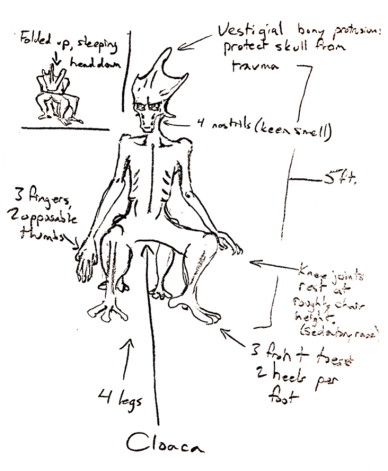 Folded up, sleeping
head down
Vestigial bony protrusions
protect skull from
trauma
4 nostrils (keen smell)
5 ft.
3 fingers,
2 opposable
thumbs
Knee joints
rest at
roughly chair
height,
(sedentary race)
3 front toes
2 heels per
foot
4 legs
Cloaca